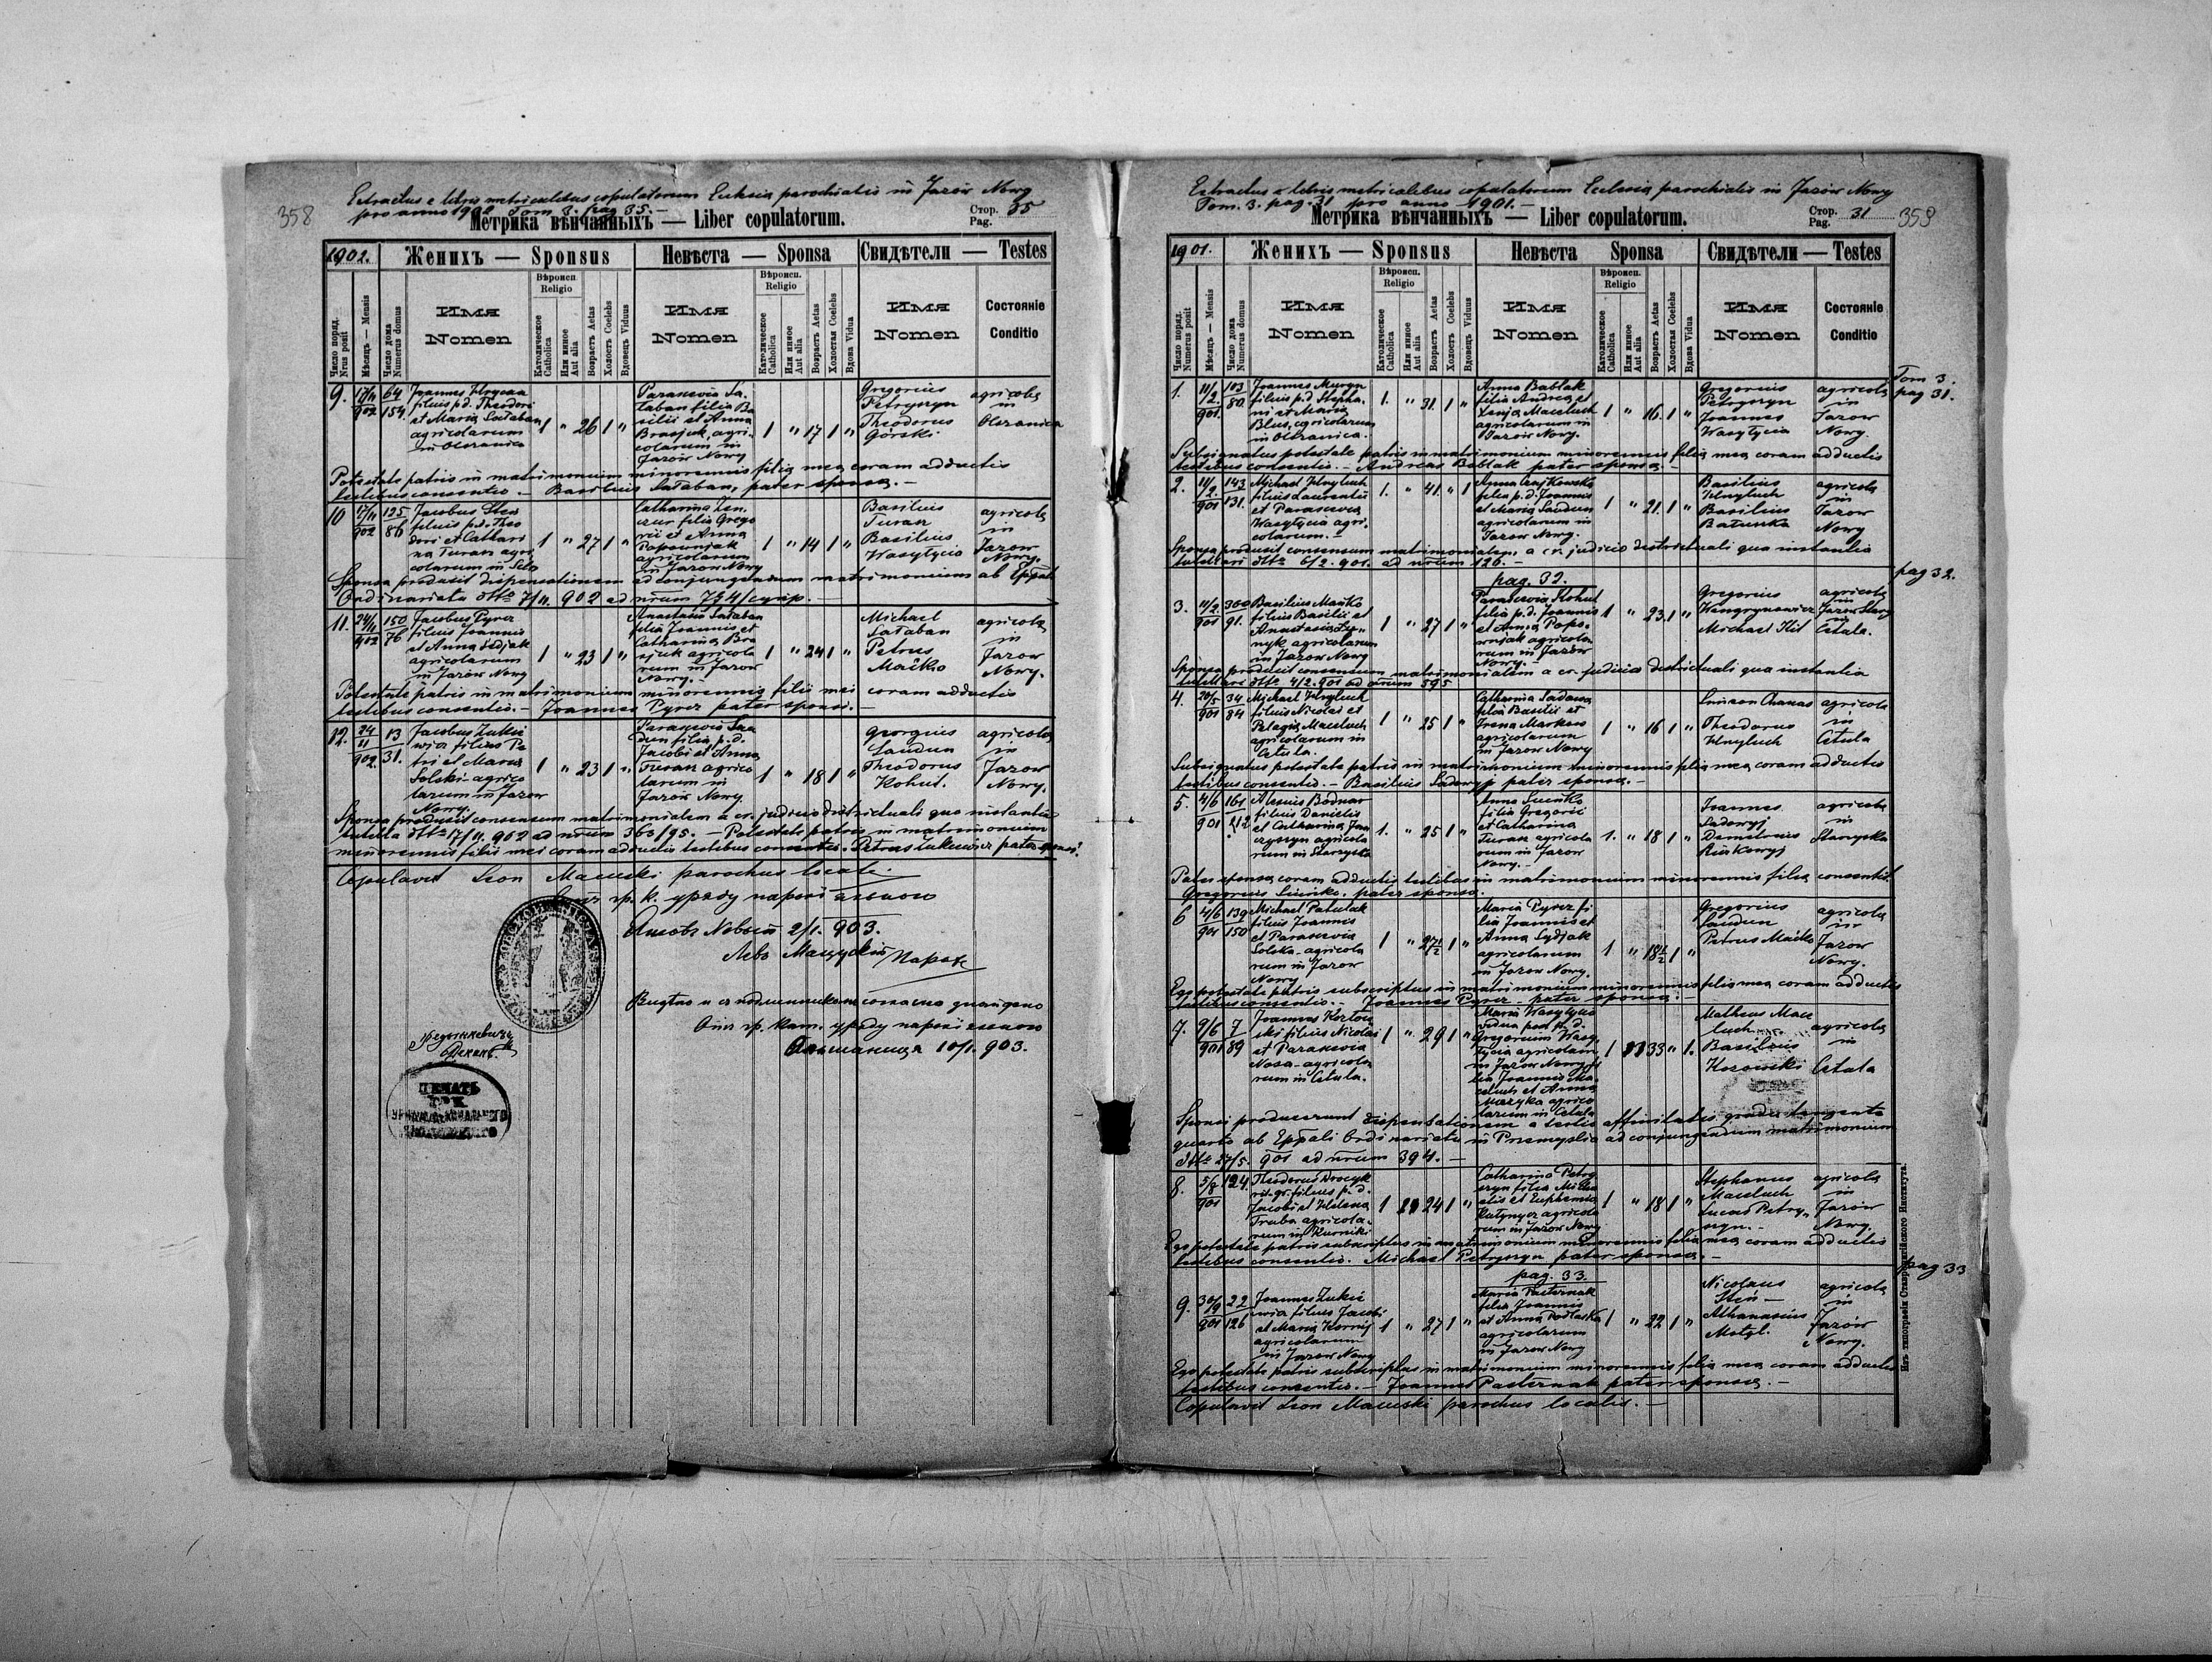 358
Extractus e libris metricalibus copulatorum Ecclesia parochialis in Jazów Nowy
pro anno 1902 Tom 3. pag 35. —
Метрика вѣнчанныхъ — Liber copulatorum.
Стор. Pag. 35
1902.
Женихъ — Sponsus
Невѣста — Sponsa
Свидѣтели — Testes
Число поряд. Nrus posit
Мѣсяцъ — Mensis
Число дома Numerus domus
Имя Nomen
Вѣроисп. Religio
Католическое Catholica
Или иное Aut alia
Возрастъ Aetas
Холостъ Coelebs
Вдовецъ Viduus
Имя Nomen
Вѣроисп. Religio
Католическое Catholica
Или иное Aut alia
Возрастъ Aetas
Холостая Coelebs
Вдова Vidua
Имя Nomen
Состояніе Conditio
9. 17/11 902 64 154
Joannes Hrycan
filius p.d. Theodori
et Maria Sałaban
agricolarum
in Olszanica
1 " 26 1 "
Parascevia Sa-
łaban filia Ba
silii et Anna
Brasjuk, agri-
colarum in
Jazów Nowy
1 " 17 1 "
Gregorius
Petryszyn
Theodorus
Górski
agricola
in
Olszanica
Potestate patris in matrimonium minorennis filia mea coram adductis
testibus consentio. — Basilius Sałaban, pater sponsa. —
10 17/11 902 125 86
Jacobus Steń
filius p.d. Theo
dori et Cathari
na Turan agri
colarum in
1 " 27 1 "
Catharina
filia Grego
rii et Anna
Popowniak
agricolarum
in Jazow Nowy
1 " 14 1 "
Basilius
Turan
Basilius
Wasylycia
agricola
in
Jazow
Nowy.
Sponsa produxit dispensationem ad conjungendum matrimonium ab Eppali
Ordinariatu dtto 7/11. 902 ad nrum
11. 24/11 902 150 76
Jacobus Pyrez
filius Joannis
et Anna Sydjak
agricolarum
in Jazów Nowy
1 " 23 1 "
Anastasia Sałaban
filia Joannis et
Catharina Bra
sjuk agricola
rum in Jazow
Nowy. —
1 " 24 1 "
Michael
Sałaban
Petrus
Maćko
agricola
in
Jazow
Nowy.
Potestate patris in matrimonium minorennis filii mei coram adductis
testibus consentio. — Joannes Pyrez pater sponsi. —
12. 24/11 902. 13 31.
Jacobus Łukie
wicz filius Pe
tri et Maria
Solski agrico
larum in Jazow
Nowy.
1 " 23 1 "
Parascevia Sau
dun filia p.d.
Jacobi et Anna
Turan agrico
larum in
Jazów Nowy
1 " 18 1 "
Georgius
Saudun
Theodorus
Kohut.
agricola
in
Jazow
Nowy.
Sponsa produxit consensum matrimonialem a cr. judicio districtuali qua instantia
tutella dtto 17/11. 902 ad nrum 360/95. — Potestate patris in matrimonium
minorennis filii mei coram adductis testibus consentio. Petrus Łukiewicz pater sponsi.
Copulavit Leon Macuski parochus localis.
Отъ гр. к. уряду парохіяльного
Язовъ Новый 2/1. 903.
Левъ Мацускій Парохъ
Видѣно и съ подлинникомъ согласно знайдено
Отъ гр. кат. уряду парохіяльного
Ольшаница 10/1. 903.
Деканъ
ПЕЧАТЬ
ГР. К.
359
Extractus e libris metricalibus copulatorum Ecclesia parochialis in Jazów Nowy
Tom. 3. pag. 31 pro anno 1901. —
Метрика вѣнчанныхъ — Liber copulatorum.
Стор. Pag. 31
1901.
Женихъ — Sponsus
Невѣста Sponsa
Свидѣтели — Testes
Число поряд. Numerus posit
Мѣсяцъ — Mensis
Число дома Numerus domus
Имя Nomen
Вѣроисп. Religio
Католическое Catholica
Или иное Aut alia
Возрастъ Aetas
Холостъ Coelebs
Вдовецъ Viduus
Имя Nomen
Вѣроисп. Religio
Католическое Catholica
Или иное Aut alia
Возрастъ Aetas
Холостая Coelebs
Вдова Vidua
Имя Nomen
Состояніе Conditio
Tom 3.
pag 31.
1. 11/2. 901 103 80.
Joannes Muryn
filius p.d. Stepha-
ni et Maria
Blus, agricolarum
in Olszanica.
1. " 31. 1 "
Anna Bablak
filia Andrea et
Xenja Maceluch
agricolarum in
Jazów Nowy.
1 " 16. 1 "
Gregorius
Petryszyn
Joannes
Wasylycia
agricola
in
Jazow
Nowy.
Subsignatus potestate patris in matrimonium minorennis filia mea coram adductis
testibus consentio. — Andreas Bablak pater sponsa. —
2. 11/2. 901 143 131.
Michael Hnyluch
filius Laurentii
et Parascevia
Wasylycia agri-
colarum. —
1. " 41. " 1
Anna Czajkowska
filia p.d. Joannis
et Maria Saudun
agricolarum in
Jazow Nowy.
1 " 21. 1 "
Basilius
Hnyluch
Basilius
Bałunka
agricola
in
Jazow
Nowy
Sponsa produxit consensum matrimonialem a cr. judicio districtuali qua instantia
tutellari dtto 6/2. 901. ad nrum 126. —
pag. 32.
pag 32.
3. 11/2. 901 360 91.
Basilius Maćko
filius Basilii et
Anastasia
agricolarum
in Jazow Nowy
1 " 27 1 "
Parascevia Kohut
filia p.d. Joannis
et Anna Popo-
wnjak agricola
rum in Jazów
Nowy. —
1 " 23. 1 "
Gregorius
Wengrynowicz
Michael Kit
agricola
in
Jazow Stary
in
Cetula.
Sponsa produxit consensum matrimonialem a cr. judicio districtuali qua instantia
tutellari dtto 4/2. 901 ad nrum 595
4. 20/5 901 34 84
Michael Hnyluch
filius Nicolai et
Pelagia Maceluch
agricolarum in
Cetula.
1 " 25 1 "
Catharina Sadowa
filia Basilii et
Irena Markow
agricolarum
in Jazow Nowy
1 " 16 1 "
Simeon Chanas
Theodorus
Hnyluch
agricola
in
Cetula
Subsignatus potestate patris in matrimonium minorennis filia mea coram adductis
testibus consentio. — Basilius Sadowyj pater sponsa. —
5. 4/6 901 161 212
Alexius Bodnar
filius Danielis
et Catharina
agricola
rum in Starzyska
1. " 25 1 "
Anna Seńko
filia Gregorii
et Catharina
Turan agricola
rum in Jazow
Nowy. —
1. " 18 1 "
Joannes
Sadowyj
Demetrius
agricola
in
Starzyska
Pater sponsa coram adductis testibus in matrimonium minorennis filia consentit.
Gregorius pater sponsa.
6 4/6 901 139 150
Michael Patulak
filius Joannis
et Parascevia
Solska agricola
rum in Jazow
Nowy
1 " 27 1/2 1 "
Maria Pyrez fi
lia Joannis et
Anna Sydjak
agricolarum
in Jazow Nowy.
1 " 18 1/2 1 "
Gregorius
Saudun
Petrus Maćko
agricola
in
Jazow
Nowy.
Ego potestate patris subscriptus in matrimonium minorennis filia mea coram adductis
testibus consentio. — Joannes Pyrez pater sponsa. —
7. 9/6 901 7 89
Joannes
filius Nicolai
et Parascevia
Nosa agricola
rum in Cetula.
1 " 29 1 "
Maria Wasylycia
vidua post p.d.
Gregorium Wasy
lycia agricolam
in Jazow Nowy, fi
lia Joannis Ma
celuch et Anna
Mazyka agrico
larum in Cetula
1 " 33 " 1.
Matheus Mace
luch
Basilius
Kozowski
agricola
in
Cetula
Sponsi produxerunt dispensationem a tertio affinitatis gradu tangente
quarto ab Eppali Ordinariatu in Przemyslia ad conjungendum matrimonium
dtto 27/5. 901 ad nrum 394. —
8. 5/8 901 124.
Theodorus Drozyk
rit. gr. filius p. d.
Jacobi et Helena
Truba agricola-
rum in Kurniki
1 " 24 1 "
Catharina Petry
szyn filia Micha
elis et Euphemia
agricola
rum in Jazow Nowy
1 " 18 1 "
Stephanus
Maceluch
Lucas Petry-
szyn. —
agricola
in
Jazów
Nowy.
Ego potestate patris subscriptus in matrimonium minorennis filia mea coram adductis
testibus consentio. Michael Petryszyn pater sponsa. —
pag. 33.
pag 33
9. 30/9 901 22 126
Joannes Łukie
wicz filius Jacobi
et Maria Kornij
agricolarum
in Jazow Nowy
1 " 27 1 "
Maria Pasternak
filia Joannis
et Anna Podlaska
agricolarum
in Jazow Nowy
1 " 22 1 "
Nicolaus
Steń —
Athanasius
Motyl.
agricola
in
Jazów
Nowy.
Ego potestate patris subscriptus in matrimonium minorennis filia mea coram adductis
testibus consentio. — Joannes Pasternak pater sponsa. —
Copulavit Leon Macuski parochus localis. —
Изъ типографіи Ставропигійского Института.